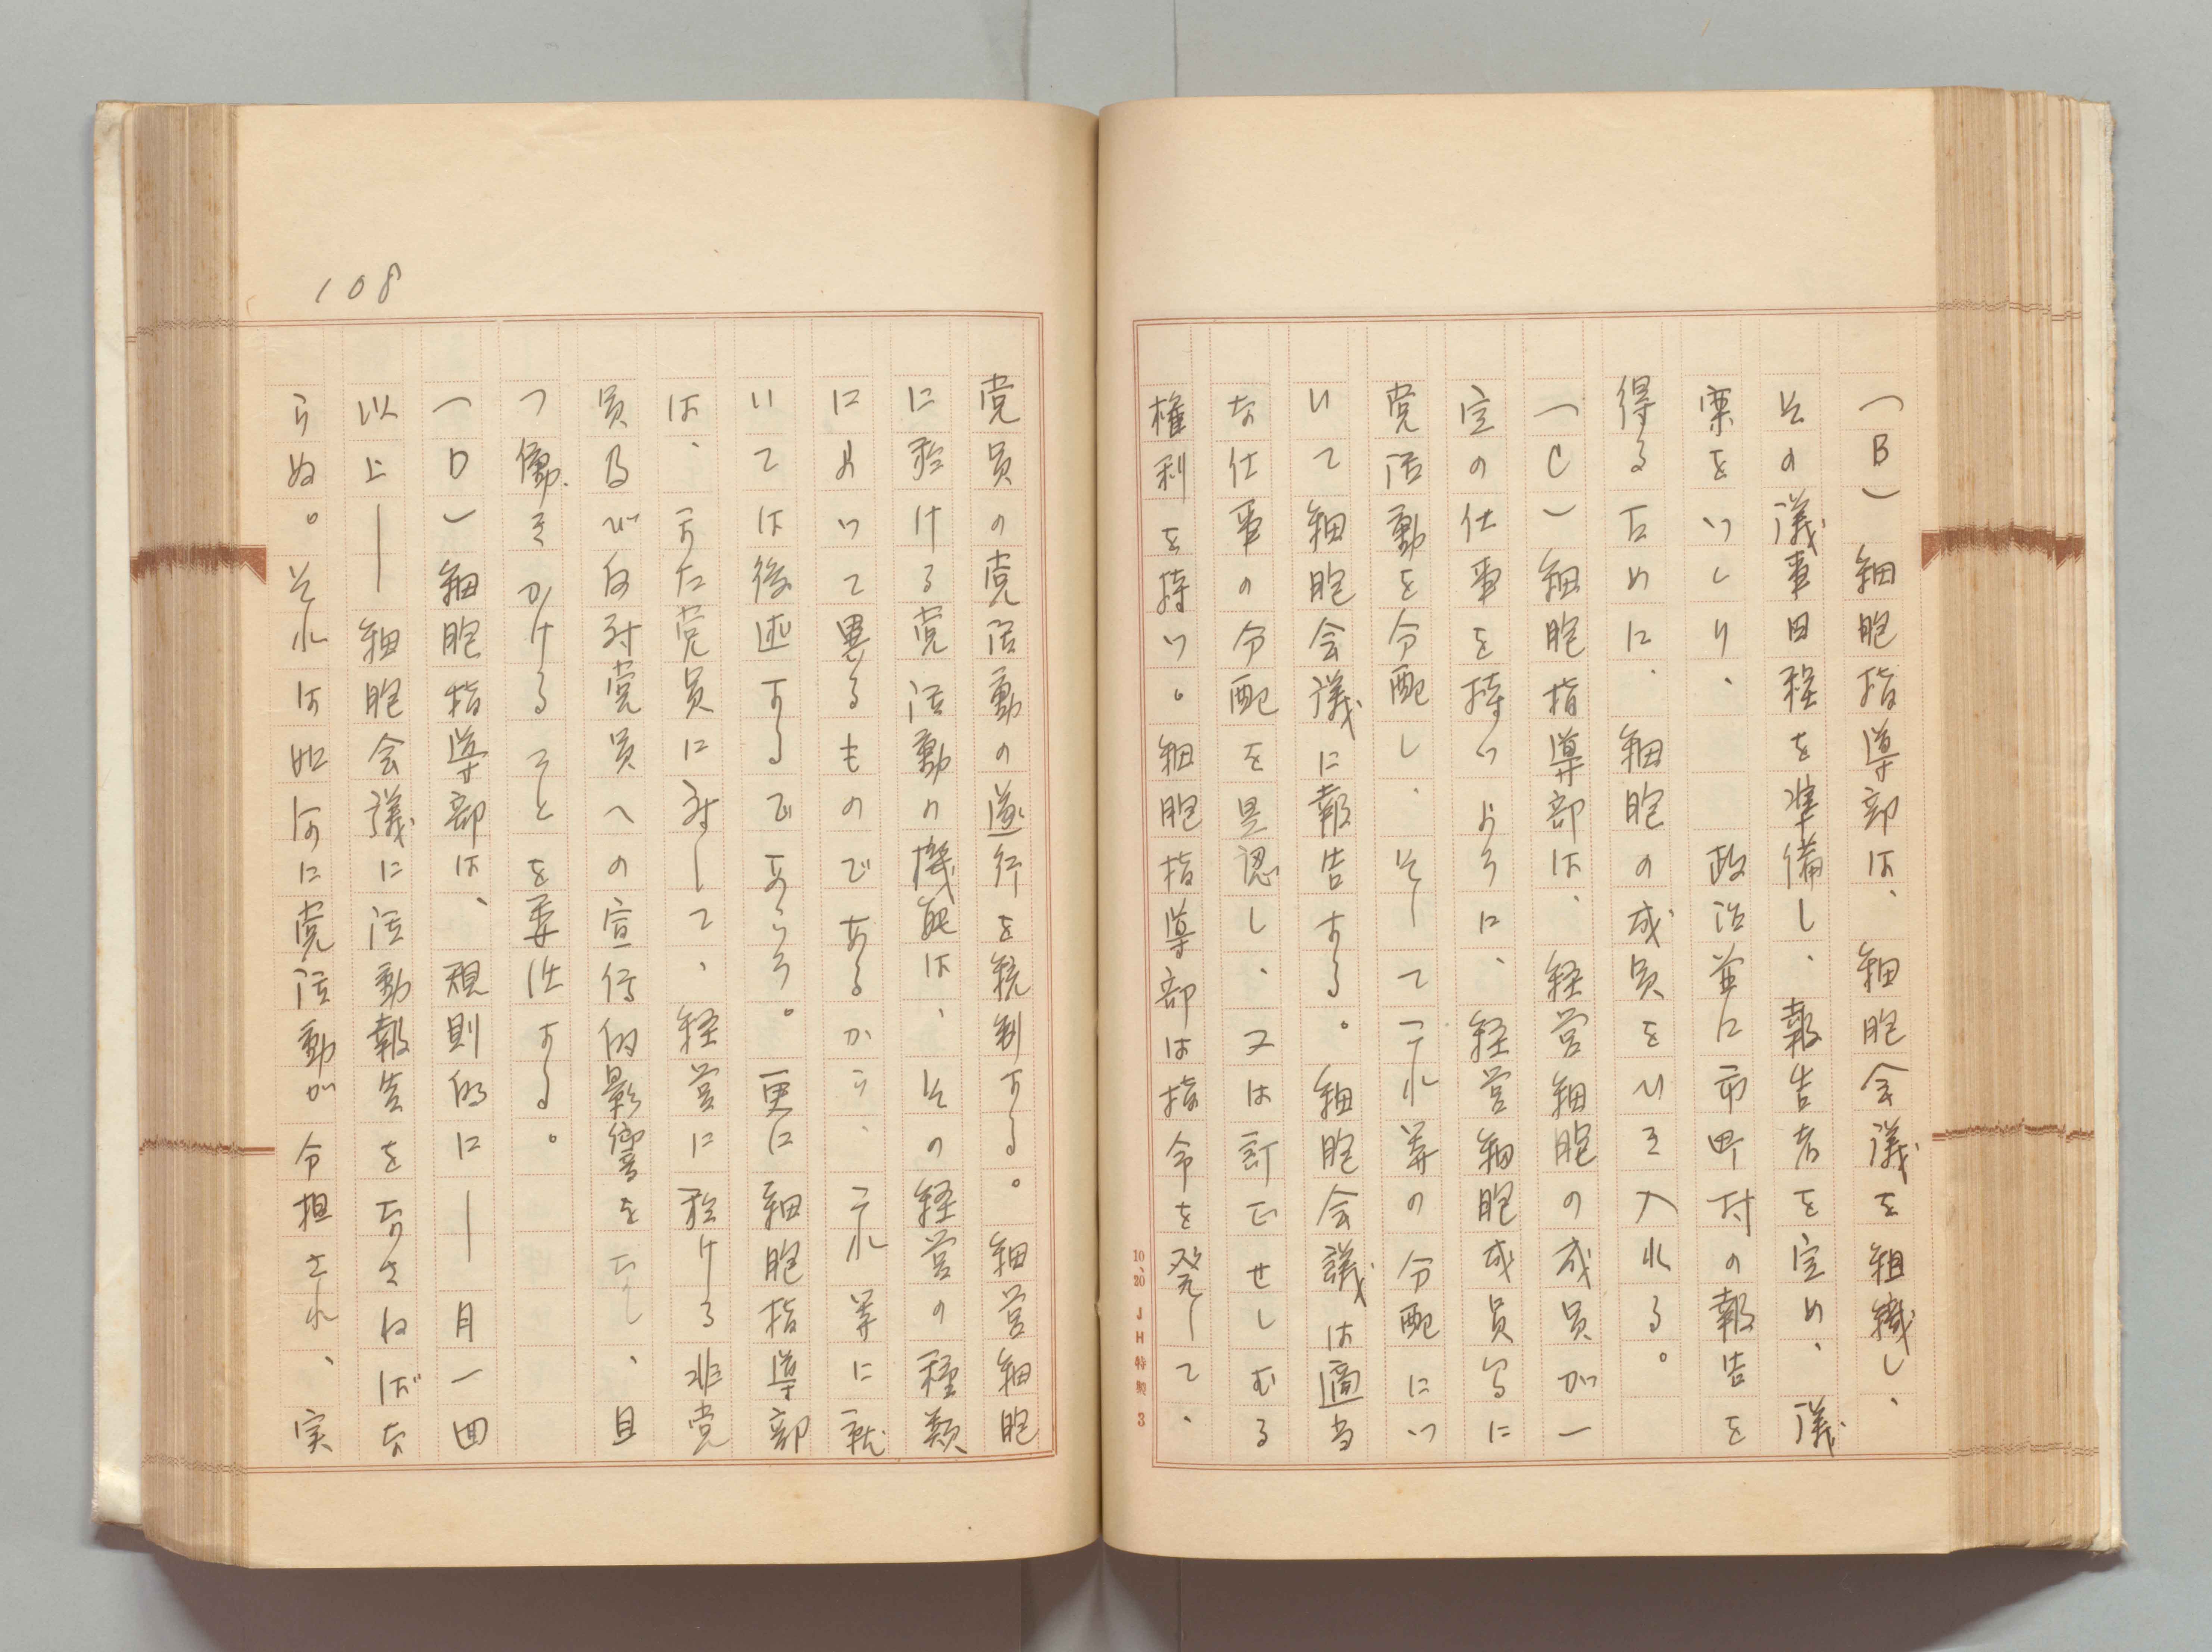 (B) 細胞指導部は、細胞会議を組織し、
その議事日程を準備し、報告者を定め、議
案をつくり、 政治並に市町村の報告を
得るために、細胞の成員をひき入れる。
(C)細胞指導部は、経営細胞の成員が一
定の仕事を持つように、経営細胞成員等に
党活動を分配し、そしてこれ等の分配につ
いて細胞会議に報告する。細胞会議は適当
な仕事の分配を是認し、又は訂正せしむる
権利を持つ。細胞指導部は指令を発して、
10.20 JH特製 3
108
党員の党活動の遂行を統制する。細営細胞
に於ける党活動の機能は、その経営の種類
によつて異るものであるから、これ等に就
いては後述するであらう。更に細胞指導部
は、また党員に対して、経営に於ける非党
員及び反対党員への宣伝的影響をなし、且
つ働きかけることを委任する。
(D)細胞指導部は、規則的に――月一回
以上――細胞会議に活動報告をなさねばな
らぬ。それは如何に党活動が分担され、実